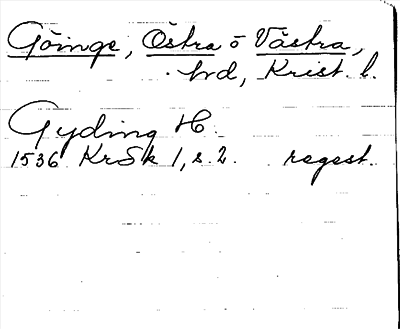 Göinge, Östra o Västra,
hrd, Krist. l.
Gyding H.
1536 KrSk 1, s. 2. regest.